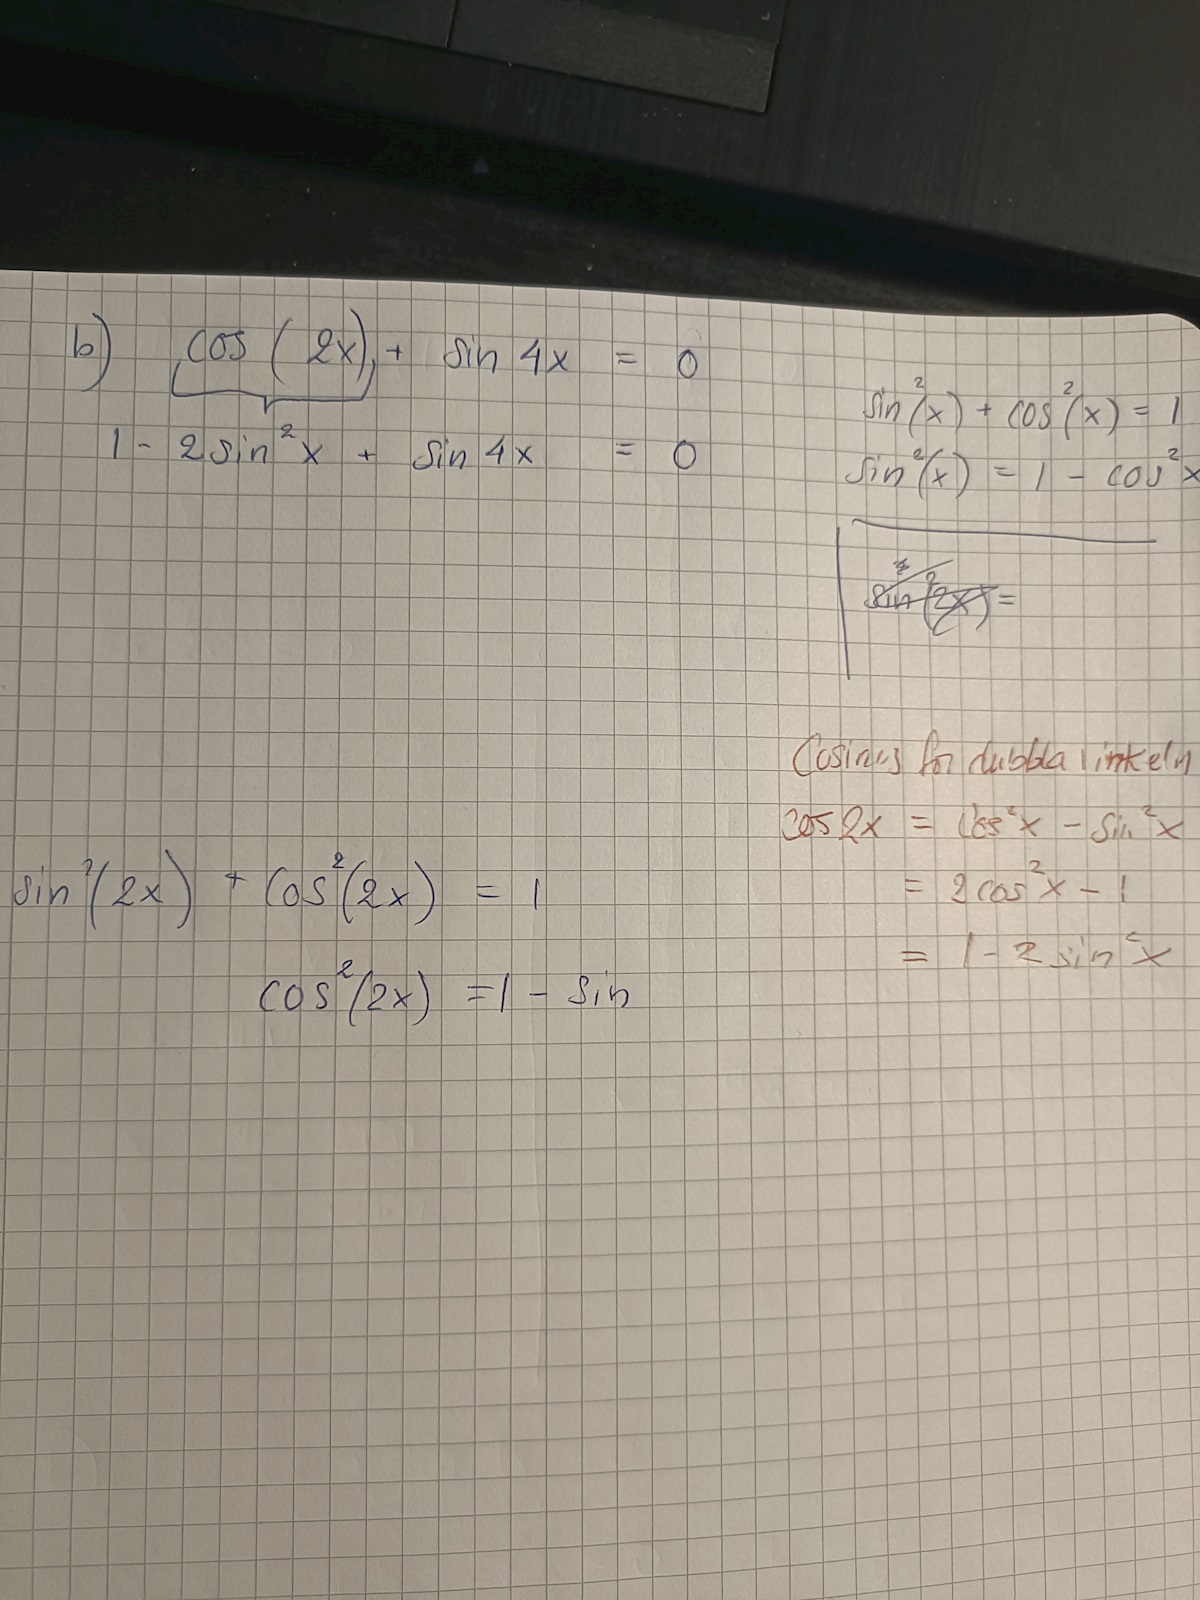 b) cos (2x) + sin 4x = 0
1 - 2 sin²x + sin 4x = 0
sin²(x) + cos²(x) = 1
sin²(x) = 1 - cos²x
sin²(2x) =
Cosinus för dubbla vinkeln
cos 2x = cos²x - sin²x
= 2 cos²x - 1
= 1 - 2 sin²x
sin²(2x) + cos²(2x) = 1
cos²(2x) = 1 - sin